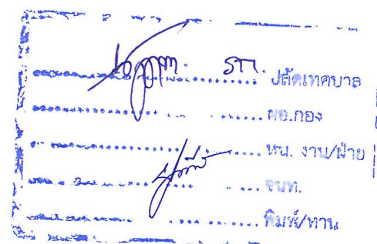 รก. ปลัดเทศบาล
ผอ.กอง
หน. งาน/ฝ่าย
จนท.
พิมพ์/ทาน